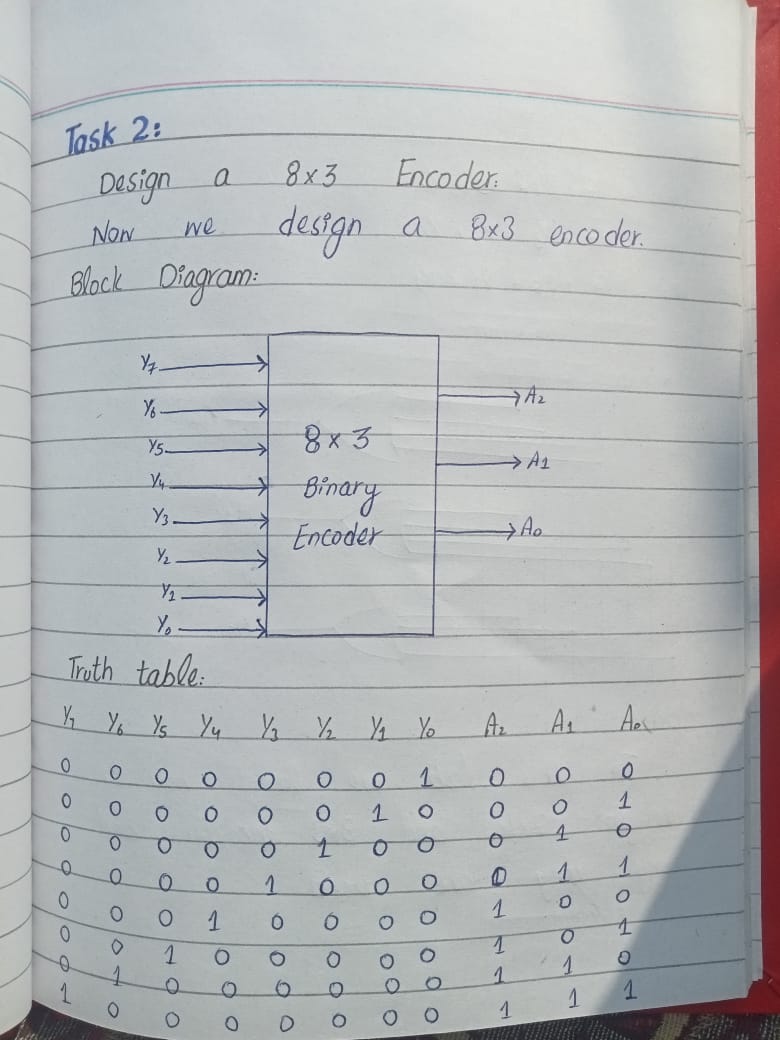 Task 2:
Design a 8x3 Encoder.
Now we design a 8x3 encoder.
Block Diagram:
Y7
Y6
Y5
Y4
Y3
Y2
Y1
Y0
8 x 3
Binary
Encoder
A2
A1
A0
Truth table:
Y7 Y6 Y5 Y4 Y3 Y2 Y1 Y0 A2 A1 A0
0 0 0 0 0 0 0 1 0 0 0
0 0 0 0 0 0 1 0 0 0 1
0 0 0 0 0 1 0 0 0 1 0
0 0 0 0 1 0 0 0 0 1 1
0 0 0 1 0 0 0 0 1 0 0
0 0 1 0 0 0 0 0 1 0 1
0 1 0 0 0 0 0 0 1 1 0
1 0 0 0 0 0 0 0 1 1 1